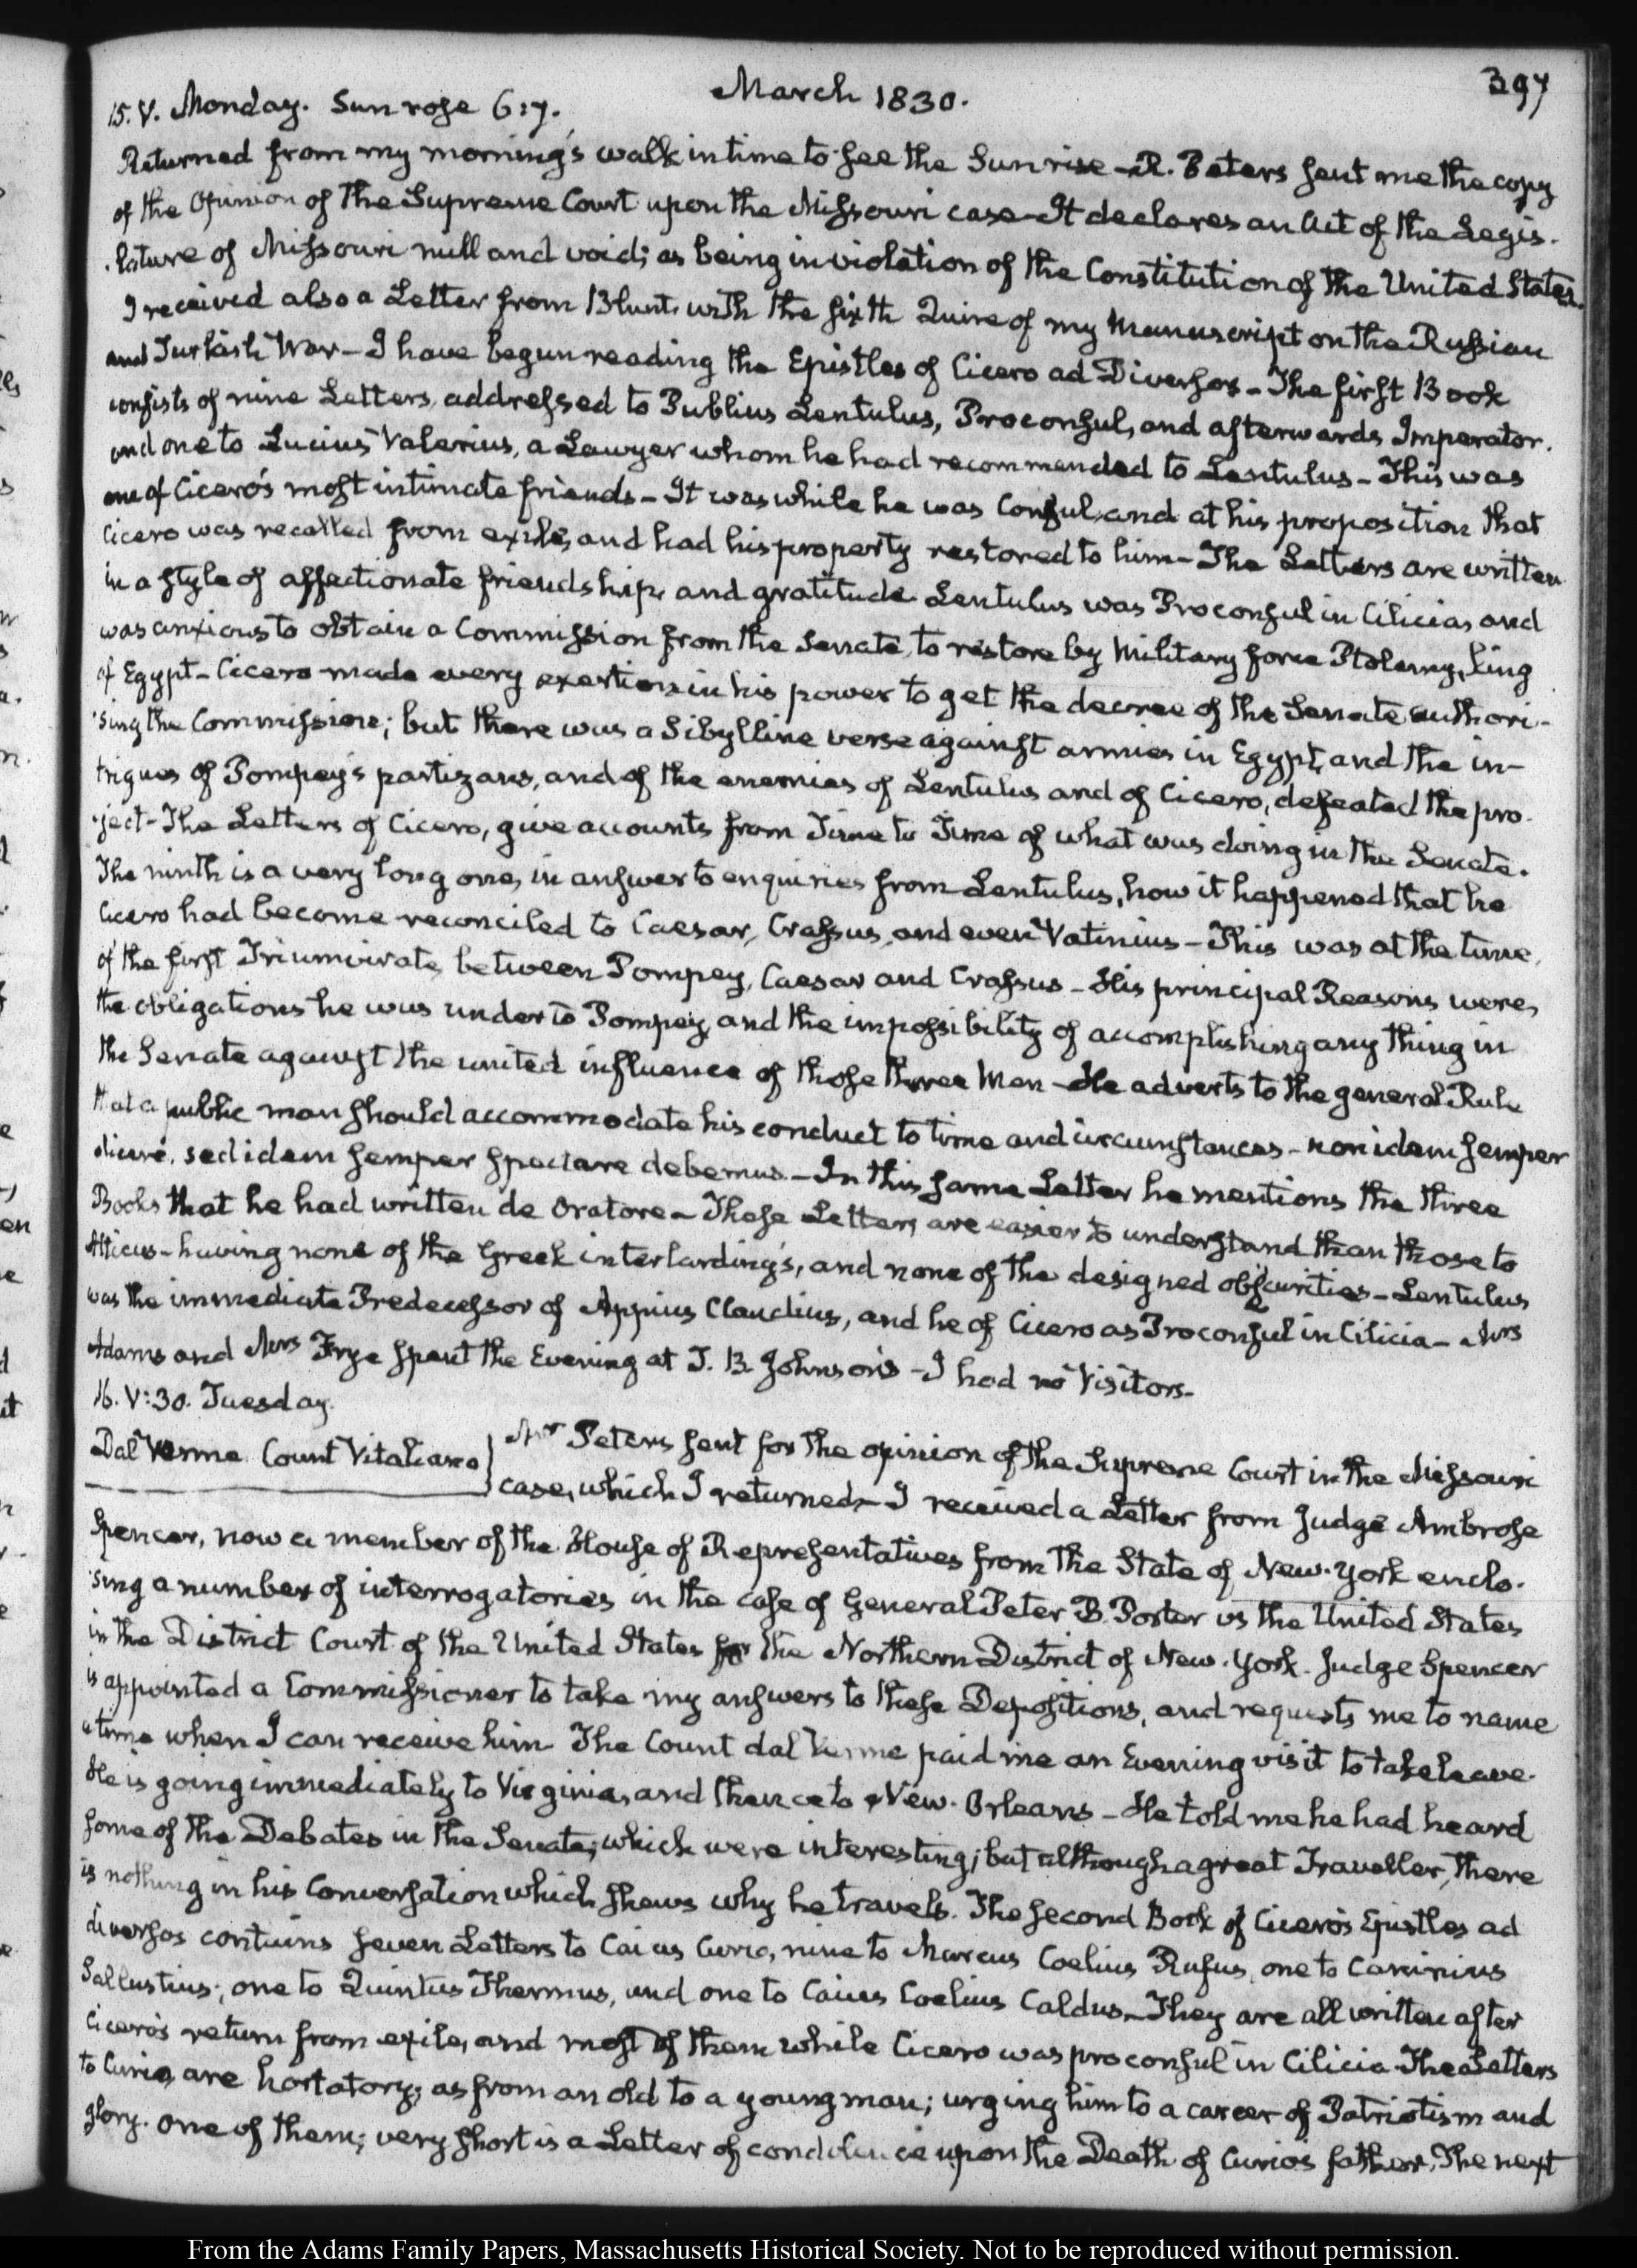 March 1830.
397
15. V. Monday. Sun rose 6:7.
Returned from my morning's walk in time to see the Sun rise - R. Peters sent me the copy
of the Opinion of the Supreme Court upon the Missouri case - It declares an Act of the Legis-
-lature of Missouri null and void; as being in violation of the Constitution of the United States.
I received also a Letter from Blunt with the sixth Quire of my Manuscript on the Russian
and Turkish War - I have begun reading the Epistles of Cicero ad Diversos - The first Book
consists of nine Letters, addressed to Publius Lentulus, Proconsul, and afterwards Imperator.
and one to Lucius Valerius, a Lawyer whom he had recommended to Lentulus - This was
one of Cicero's most intimate friends - It was while he was Consul, and at his proposition that
Cicero was recalled from exile, and had his property restored to him - The Letters are written
in a style of affectionate friendship, and gratitude Lentulus was Proconsul in Cilicia, and
was anxious to obtain a Commission from the Senate, to restore by Military force Ptolemy, King
of Egypt - Cicero made every exertion in his power to get the decree of the Senate authori-
-sing the Commission; but there was a Sibylline verse against armies in Egypt, and the in-
trigues of Pompey's partizans, and of the enemies of Lentulus and of Cicero, defeated the pro-
-ject - The Letters of Cicero, give accounts from Time to Time of what was doing in the Senate.
The ninth is a very long one, in answer to enquiries from Lentulus, how it happened that he
Cicero had become reconciled to Caesar, Crassus, and even Vatinius - This was at the time,
of the first Triumvirate, between Pompey, Caesar and Crassus - His principal Reasons were,
the obligations he was under to Pompey, and the impossibility of accomplishing any thing in
the Senate against the united influence of those three Men - He adverts to the general Rule
that a public man should accommodate his conduct to time and circumstances - non idem semper
dicere, sed idem semper spectare debemus. - In this same Letter he mentions the three
Books that he had written de Oratore - These Letters are easier to understand than those to
Atticus - having none of the Greek interlardings, and none of the designed obscurities - Lentulus
was the immediate Predecessor of Appius Claudius, and he of Cicero as Proconsul in Cilicia - Mrs
Adams and Mrs Frye spent the Evening at T. B. Johnson's - I had no Visitors -
16. V:30. Tuesday.
Dal Verme Count Vitaliano
Mr Peters sent for the opinion of the Supreme Court in the Missouri
case, which I returned - I received a Letter from Judge Ambrose
Spencer, now a member of the House of Representatives from the State of New-York enclo-
-sing a number of interrogatories in the case of General Peter B. Porter vs the United States
in the District Court of the United States for the Northern District of New-York. Judge Spencer
is appointed a Commissioner to take my answers to these Depositions, and requests me to name
a time when I can receive him The Count dal Verme paid me an Evening visit to take leave.
He is going immediately to Virginia, and thence to New-Orleans - He told me he had heard
some of the Debates in the Senate, which were interesting; but although a great Traveller, there
is nothing in his Conversation which shows why he travels. The second Book of Cicero's Epistles ad
diversos contains seven Letters to Caius Curio, nine to Marcus Coelius Rufus, one to Caninius
Sallustius; one to Quintus Thermus, and one to Caius Coelius Caldus - They are all written after
Cicero's return from exile, and most of them while Cicero was proconsul in Cilicia The Letters
to Curio, are hortatory; as from an old to a young man; urging him to a career of Patriotism and
glory. One of them; very short is a Letter of condolence upon the Death of Curio's father. The next
From the Adams Family Papers, Massachusetts Historical Society. Not to be reproduced without permission.